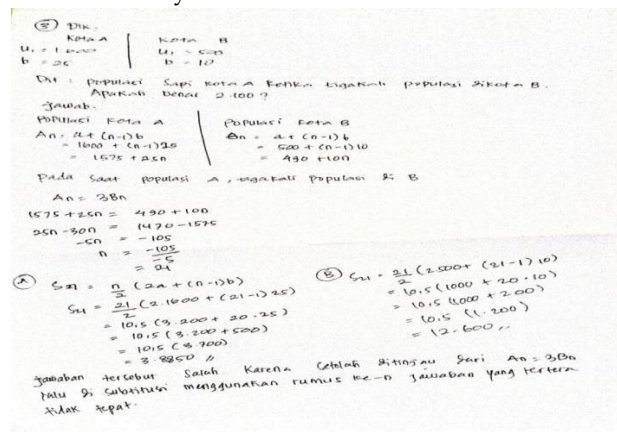 ⑤ Dik.
Kota A | Kota B
U₁ = 1600 | U₁ = 500
b = 25 | b = 10
Dit : populasi sapi kota A ketika tigakali populasi dikota B.
Apakah benar 2.100?
Jawab.
Populasi Kota A | Populasi Kota B
An = a + (n-1)b | Bn = a + (n-1)b
= 1600 + (n-1)25 | = 500 + (n-1)10
= 1575 + 25n | = 490 + 10n
Pada saat populasi A, tigakali populasi di B
An = 3Bn
1575 + 25n = 490 + 10n
25n - 30n = 1470 - 1575
-5n = -105
n = -105/-5
= 21
Ⓐ S21 = n/2 (2a + (n-1)b)
S21 = 21/2 (2.1600 + (21-1) 25)
= 10,5 (3.200 + 20.25)
= 10,5 (3.200 + 500)
= 10,5 (3.700)
= 3.8850 //
Ⓑ S21 = 21/2 (2.500 + (21-1) 10)
= 10,5 (1000 + 20.10)
= 10,5 (1000 + 200)
= 10,5 (1.200)
= 12.600 //
Jawaban tersebut salah. Karena setelah ditinjau dari An = 3Bn
lalu di subtitusi menggunakan rumus ke-n jawaban yang tertera
tidak tepat.